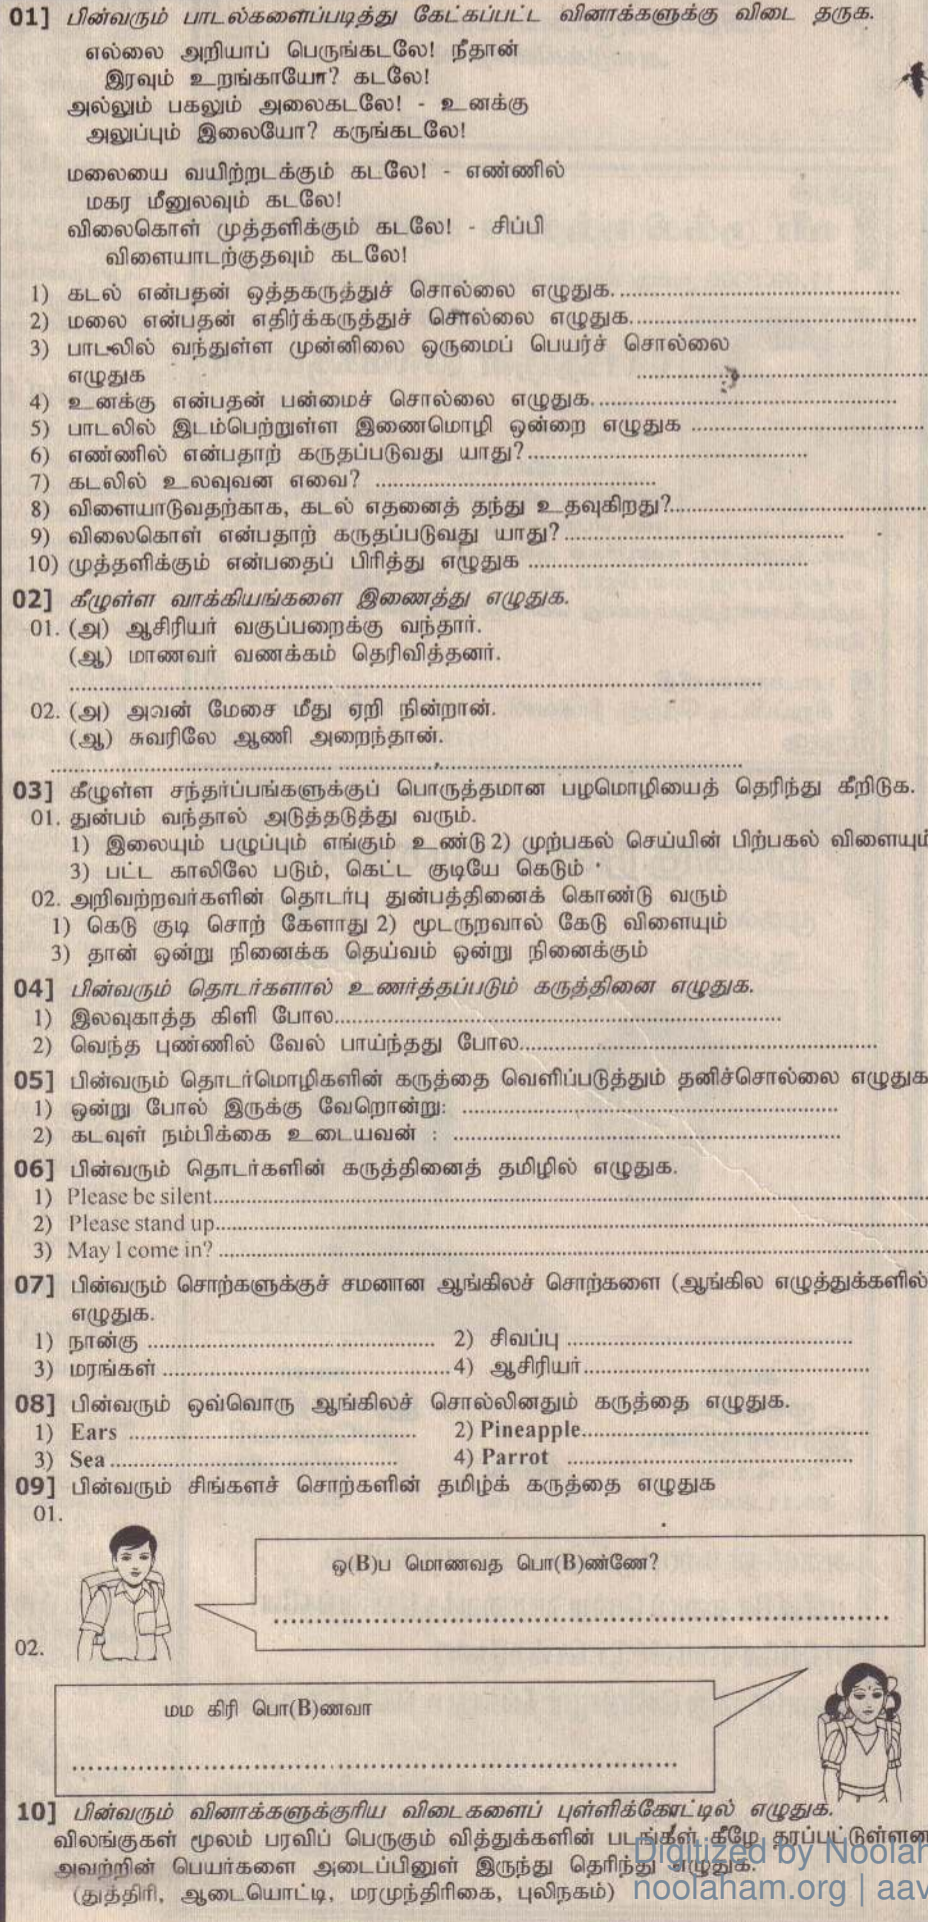 01] பின்வரும் பாடல்களைப்படித்து கேட்கப்பட்ட வினாக்களுக்கு விடை தருக.
எல்லை அறியாப் பெருங்கடலே! நீதான்
இரவும் உறங்காயோ? கடலே!
அல்லும் பகலும் அலைகடலே! - உனக்கு
அலுப்பும் இலையோ? கருங்கடலே!
மலையை வயிற்றடக்கும் கடலே! - எண்ணில்
மகர மீனுலவும் கடலே!
விலைகொள் முத்தளிக்கும் கடலே! - சிப்பி
விளையாடற்குதவும் கடலே!
1) கடல் என்பதன் ஒத்தகருத்துச் சொல்லை எழுதுக. ..........
2) மலை என்பதன் எதிர்க்கருத்துச் சொல்லை எழுதுக. ..........
3) பாடலில் வந்துள்ள முன்னிலை ஒருமைப் பெயர்ச் சொல்லை
எழுதுக ..........
4) உனக்கு என்பதன் பன்மைச் சொல்லை எழுதுக. ..........
5) பாடலில் இடம்பெற்றுள்ள இணைமொழி ஒன்றை எழுதுக ..........
6) எண்ணில் என்பதாற் கருதப்படுவது யாது? ..........
7) கடலில் உலவுவன எவை? ..........
8) விளையாடுவதற்காக, கடல் எதனைத் தந்து உதவுகிறது? ..........
9) விலைகொள் என்பதாற் கருதப்படுவது யாது? ..........
10) முத்தளிக்கும் என்பதைப் பிரித்து எழுதுக ..........
02] கீழுள்ள வாக்கியங்களை இணைத்து எழுதுக.
01. (அ) ஆசிரியர் வகுப்பறைக்கு வந்தார்.
(ஆ) மாணவர் வணக்கம் தெரிவித்தனர்.
..........
02. (அ) அவன் மேசை மீது ஏறி நின்றான்.
(ஆ) சுவரிலே ஆணி அறைந்தான்.
..........
03] கீழுள்ள சந்தர்ப்பங்களுக்குப் பொருத்தமான பழமொழியைத் தெரிந்து கீறிடுக.
01. துன்பம் வந்தால் அடுத்தடுத்து வரும்.
1) இலையும் பழுப்பும் எங்கும் உண்டு 2) முற்பகல் செய்யின் பிற்பகல் விளையும்
3) பட்ட காலிலே படும், கெட்ட குடியே கெடும்
02. அறிவற்றவர்களின் தொடர்பு துன்பத்தினைக் கொண்டு வரும்
1) கெடு குடி சொற் கேளாது 2) மூடருறவால் கேடு விளையும்
3) தான் ஒன்று நினைக்க தெய்வம் ஒன்று நினைக்கும்
04] பின்வரும் தொடர்களால் உணர்த்தப்படும் கருத்தினை எழுதுக.
1) இலவுகாத்த கிளி போல ..........
2) வெந்த புண்ணில் வேல் பாய்ந்தது போல ..........
05] பின்வரும் தொடர்மொழிகளின் கருத்தை வெளிப்படுத்தும் தனிச்சொல்லை எழுதுக
1) ஒன்று போல் இருக்கு வேறொன்று: ..........
2) கடவுள் நம்பிக்கை உடையவன் : ..........
06] பின்வரும் தொடர்களின் கருத்தினைத் தமிழில் எழுதுக.
1) Please be silent ..........
2) Please stand up ..........
3) May I come in? ..........
07] பின்வரும் சொற்களுக்குச் சமனான ஆங்கிலச் சொற்களை (ஆங்கில எழுத்துக்களில்
எழுதுக.
1) நான்கு .......... 2) சிவப்பு ..........
3) மரங்கள் .......... 4) ஆசிரியர் ..........
08] பின்வரும் ஒவ்வொரு ஆங்கிலச் சொல்லினதும் கருத்தை எழுதுக.
1) Ears .......... 2) Pineapple ..........
3) Sea .......... 4) Parrot ..........
09] பின்வரும் சிங்களச் சொற்களின் தமிழ்க் கருத்தை எழுதுக
01.
ஒ(B)ப மொணவத பொ(B)ண்ணே?
..........
02.
மம கிரி பொ(B)ணவா
..........
10] பின்வரும் வினாக்களுக்குரிய விடைகளைப் புள்ளிக்கோட்டில் எழுதுக.
விலங்குகள் மூலம் பரவிப் பெருகும் வித்துக்களின் படங்கள் கீழே தரப்பட்டுள்ளன
அவற்றின் பெயர்களை அடைப்பினுள் இருந்து தெரிந்து எழுதுக.
(துத்திரி, ஆடையொட்டி, மரமுந்திரிகை, புலிநகம்)
Digitized by Noolah
noolaham.org | aav